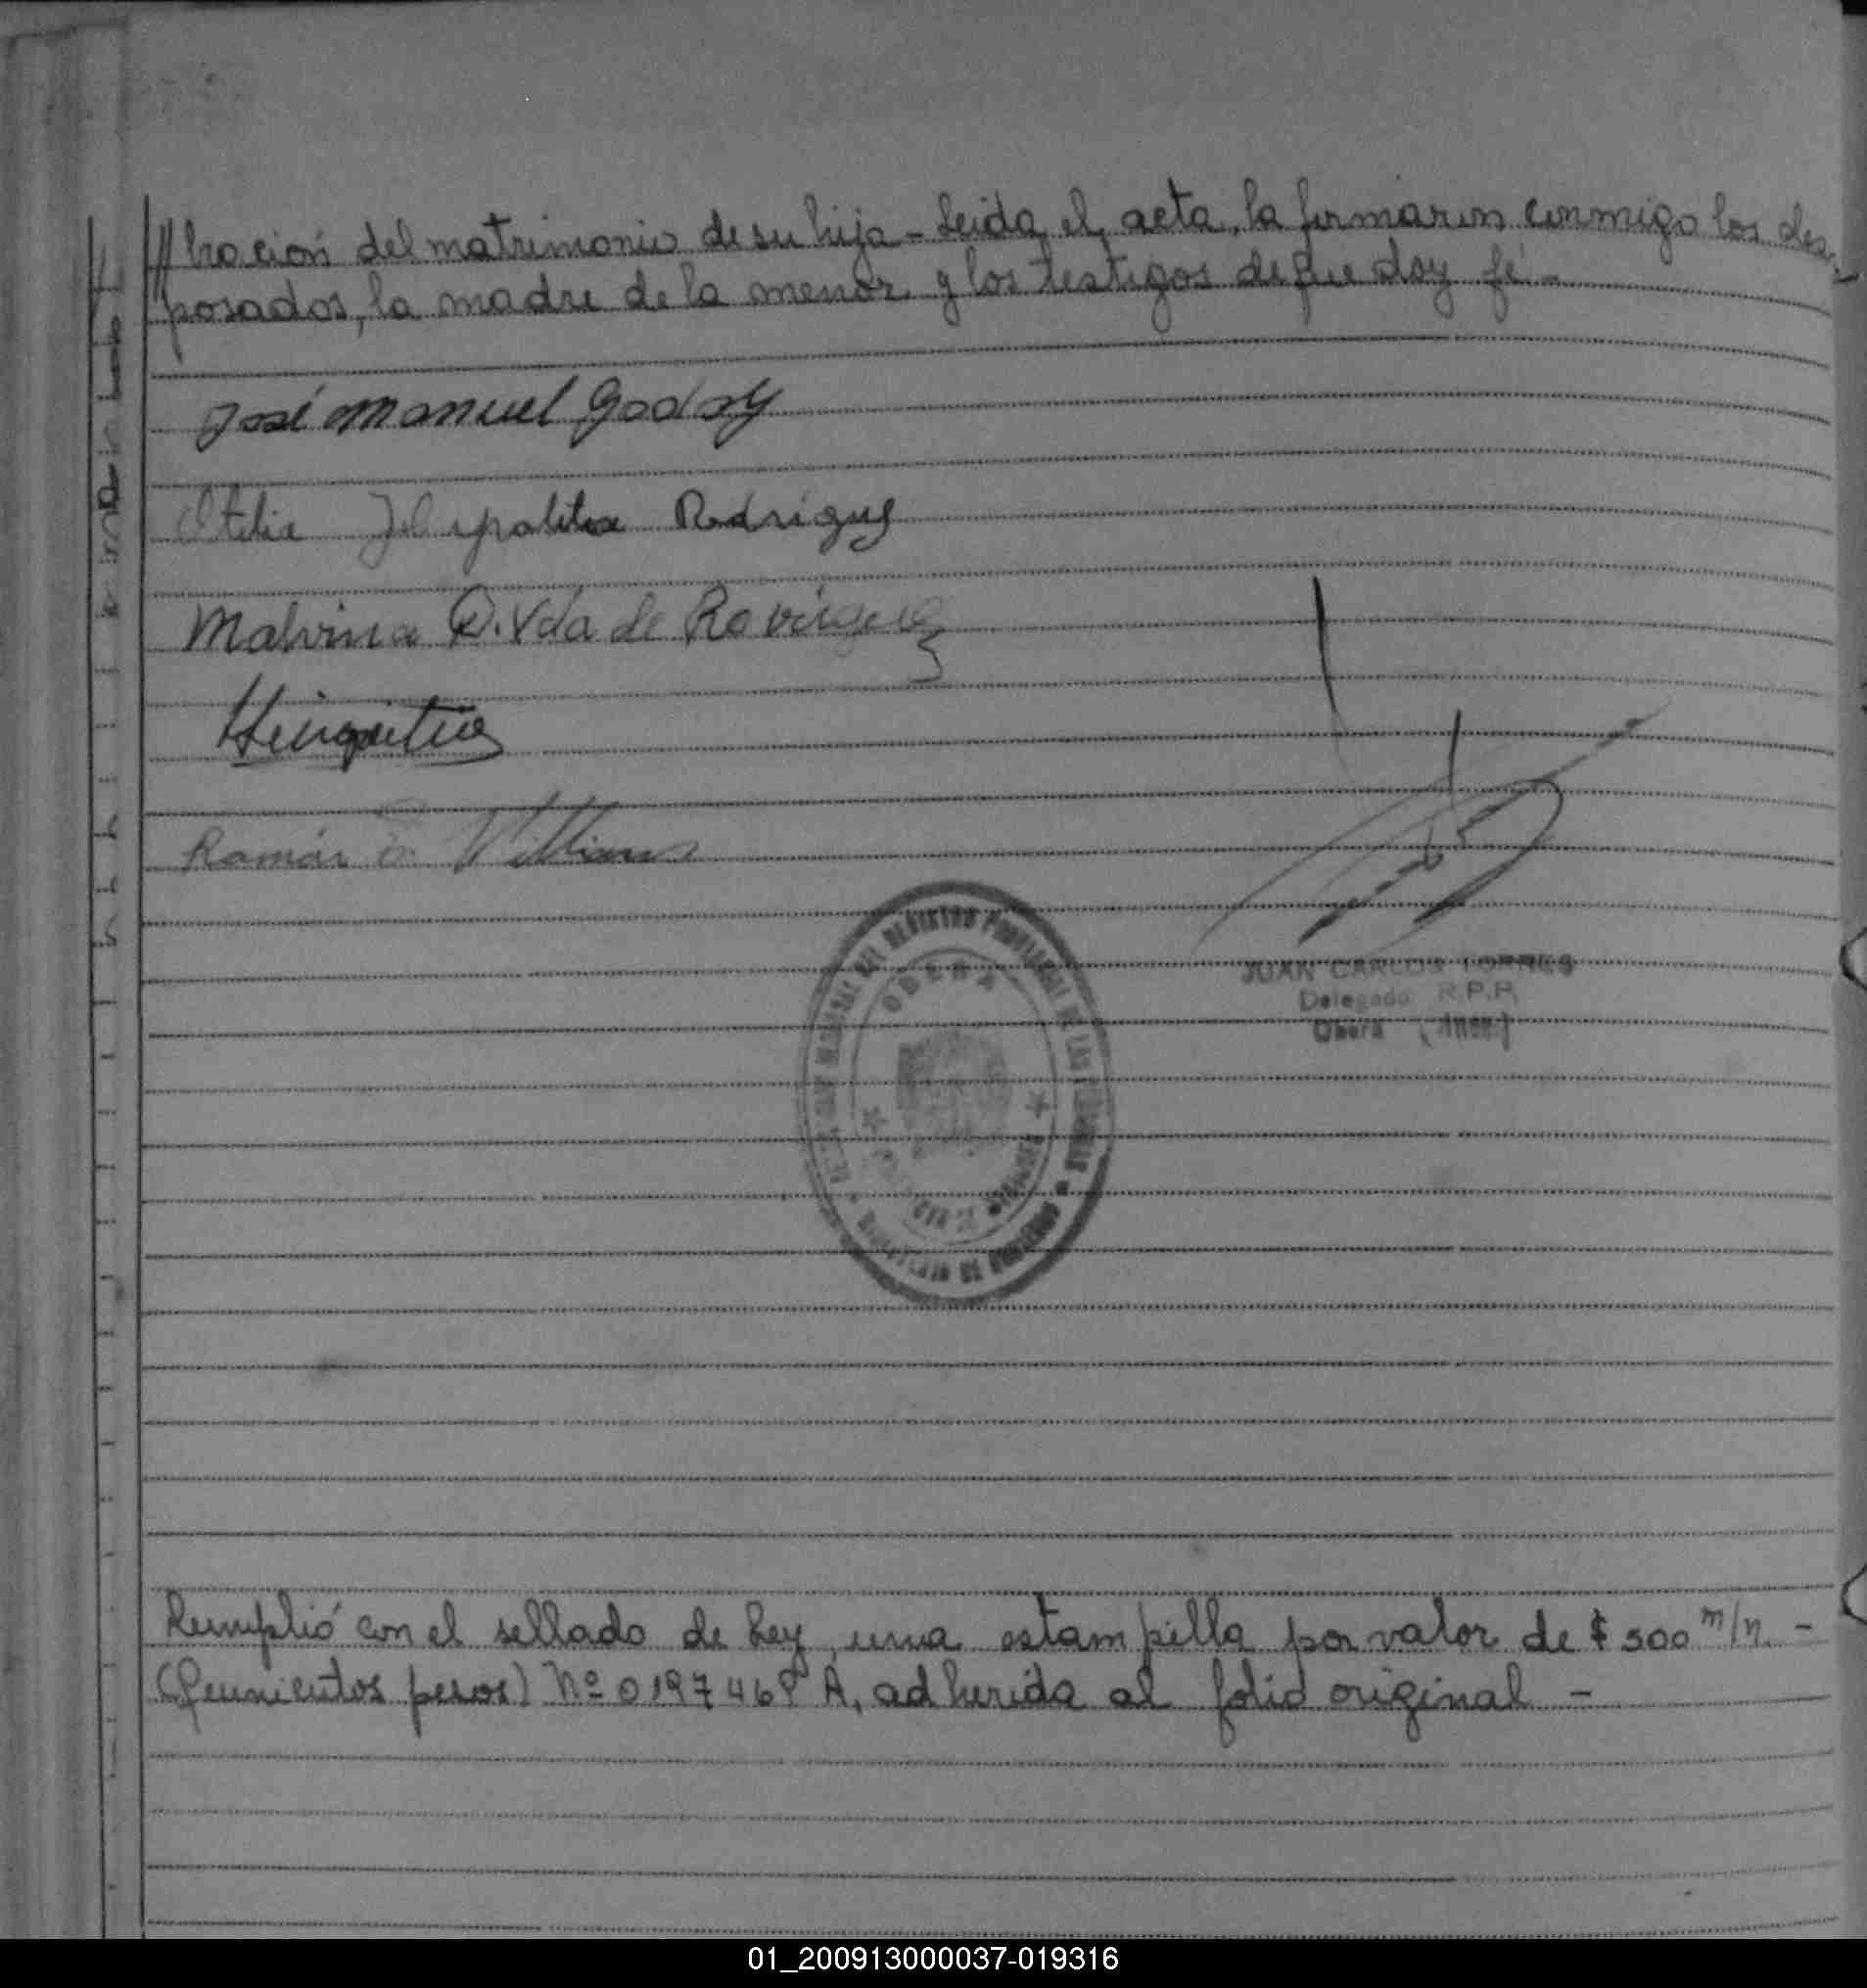 // bración del matrimonio de su hija - Leida el acta, la firmaron conmigo los des-
posados, la madre de la menor y los testigos de que doy fé -
José Manuel Godoy
Otilia Hipolita Rodrigue
Malvina Q. Vda de Ro
Ramón Williams
OBERA
JUAN CARLOS TORRES
Delegado R.P.P.
Oberá (Mnes)
Cumplió con el sellado de Ley, una estampilla por valor de $ 500 m/n. -
(Quinientos pesos) Nº 0197468 A, adherida al folio original -
01_200913000037-019316